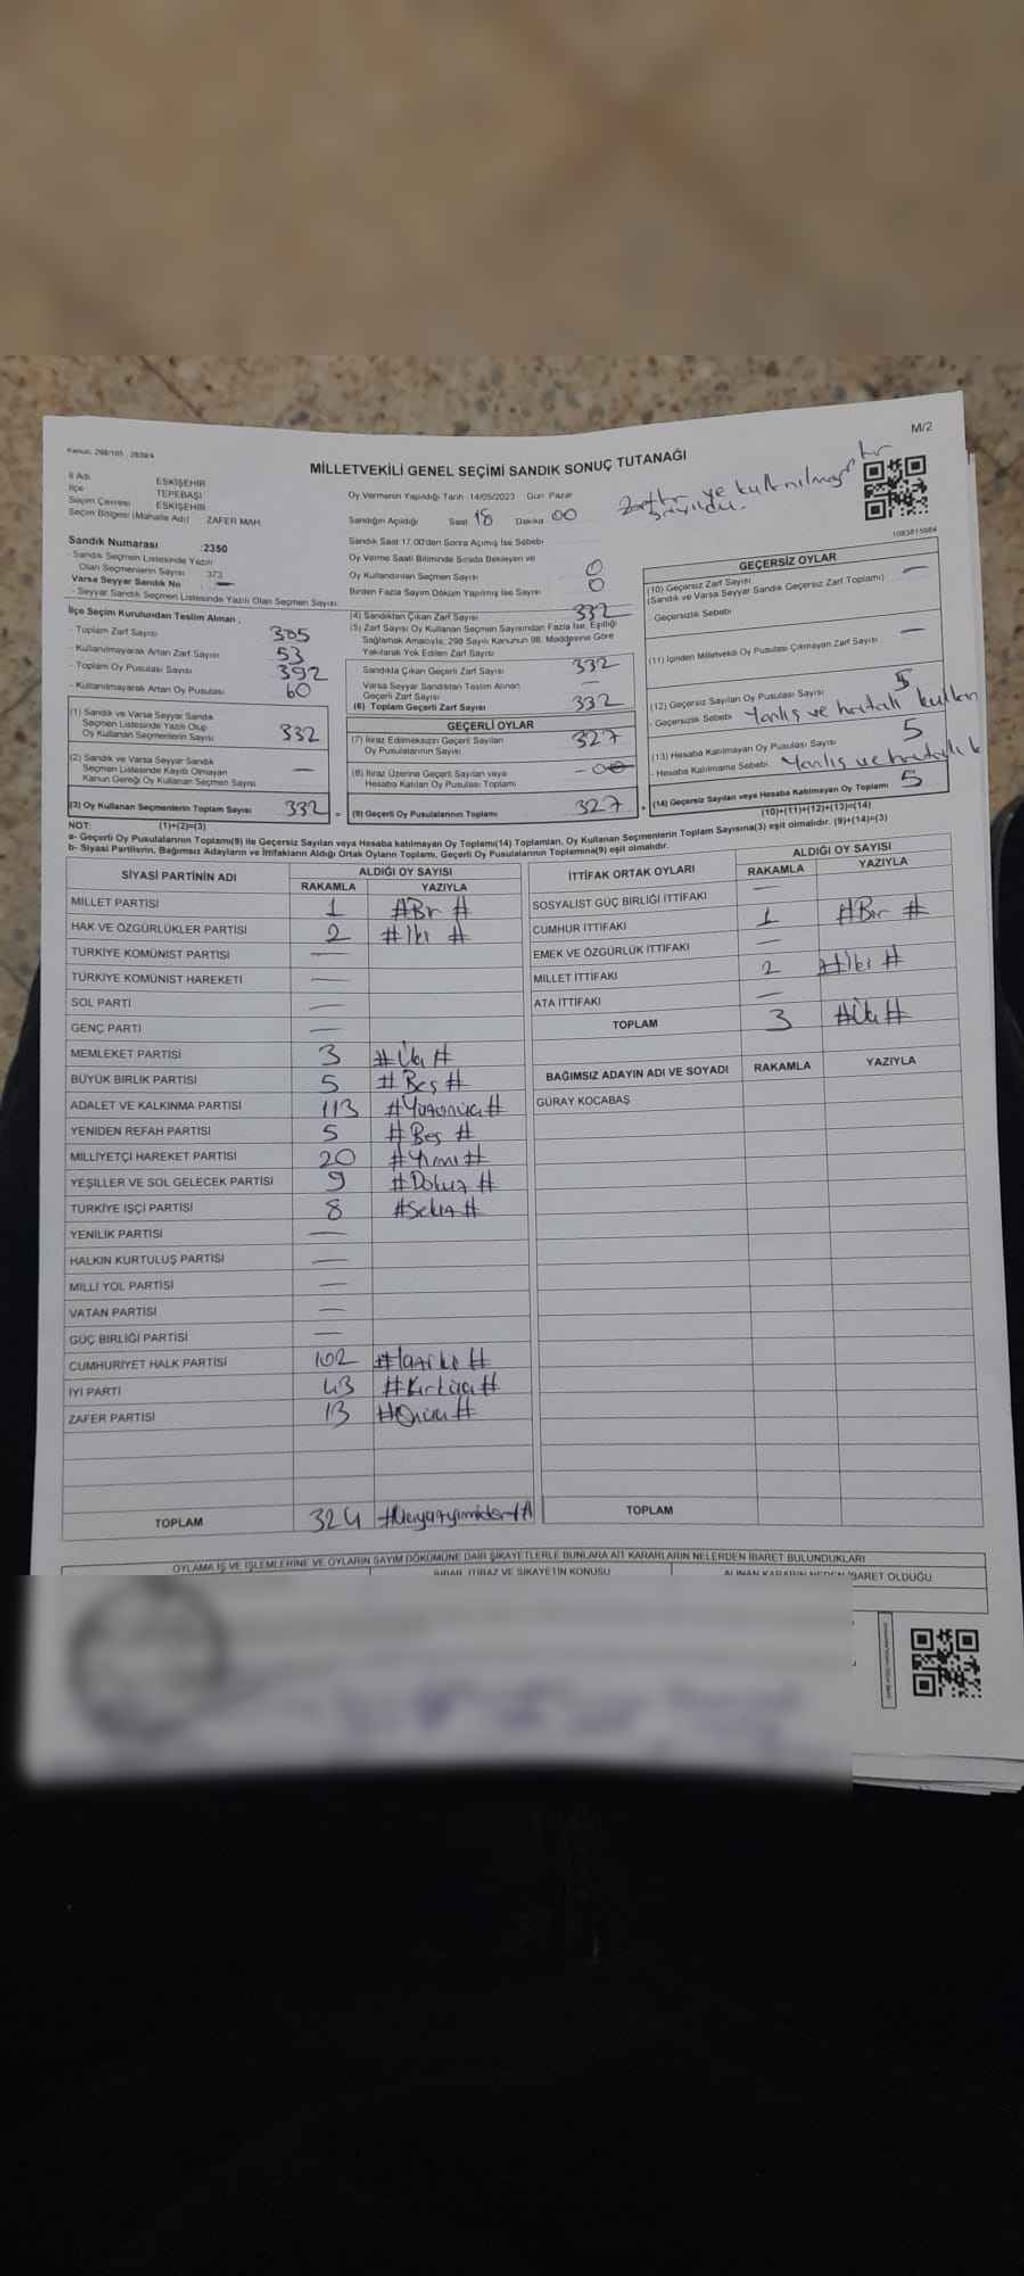 M/2
Kanun: 298/105 , 2839/4
MİLLETVEKİLİ GENEL SEÇİMİ SANDIK SONUÇ TUTANAĞI
İl Adı ESKİŞEHİR
İlçe TEPEBAŞI
Seçim Çevresi ESKİŞEHİR
Seçim Bölgesi (Mahalle Adı) ZAFER MAH.
Oy Vermenin Yapıldığı Tarih :14/05/2023 Gün: Pazar
Sandığın Açıldığı Saat 18 Dakika 00
ve kullanılmayan
sayıldı.
1083815984
Sandık Numarası :2350
Sandık Seçmen Listesinde Yazılı
Olan Seçmenlerin Sayısı 373
Varsa Seyyar Sandık No —
- Seyyar Sandık Seçmen Listesinde Yazılı Olan Seçmen Sayısı
Sandık Saat 17.00'den Sonra Açılmış İse Sebebi
Oy Verme Saati Bitiminde Sırada Bekleyen ve
Oy Kullandırılan Seçmen Sayısı 0
Birden Fazla Sayım Döküm Yapılmış İse Sayısı 0
İlçe Seçim Kurulundan Teslim Alınan ;
- Toplam Zarf Sayısı 385
- Kullanılmayarak Artan Zarf Sayısı 53
- Toplam Oy Pusulası Sayısı 392
- Kullanılmayarak Artan Oy Pusulası 60
(1) Sandık ve Varsa Seyyar Sandık
Seçmen Listesinde Yazılı Olup
Oy Kullanan Seçmenlerin Sayısı 332
(2) Sandık ve Varsa Seyyar Sandık
Seçmen Listesinde Kaydı Olmayan
Kanun Gereği Oy Kullanan Seçmen Sayısı —
(3) Oy Kullanan Seçmenlerin Toplam Sayısı 332
(1)+(2)=(3)
(4) Sandıktan Çıkan Zarf Sayısı 332
(5) Zarf Sayısı Oy Kullanan Seçmen Sayısından Fazla İse, Eşitliği
Sağlamak Amacıyla; 298 Sayılı Kanunun 98. Maddesine Göre
Yakılarak Yok Edilen Zarf Sayısı
Sandıkta Çıkan Geçerli Zarf Sayısı 332
Varsa Seyyar Sandıktan Teslim Alınan
Geçerli Zarf Sayısı —
(6) Toplam Geçerli Zarf Sayısı 332
GEÇERLİ OYLAR
(7) İtiraz Edilmeksizin Geçerli Sayılan
Oy Pusulalarının Sayısı 327
(8) İtiraz Üzerine Geçerli Sayılan veya
Hesaba Katılan Oy Pusulası Toplamı
(9) Geçerli Oy Pusulalarının Toplamı 327
GEÇERSİZ OYLAR
(10) Geçersiz Zarf Sayısı —
(Sandık ve Varsa Seyyar Sandık Geçersiz Zarf Toplamı)
Geçersizlik Sebebi
(11) İçinden Milletvekili Oy Pusulası Çıkmayan Zarf Sayısı —
(12) Geçersiz Sayılan Oy Pusulası Sayısı 5
- Geçersizlik Sebebi Yanlış ve hatalı kullan
(13) Hesaba Katılmayan Oy Pusulası Sayısı 5
- Hesaba Katılmama Sebebi Yanlış ve
(14) Geçersiz Sayılan veya Hesaba Katılmayan Oy Toplamı 5
(10)+(11)+(12)+(13)=(14)
NOT:
a- Geçerli Oy Pusulalarının Toplamı(9) ile Geçersiz Sayılan veya Hesaba katılmayan Oy Toplamı(14) Toplamları, Oy Kullanan Seçmenlerin Toplam Sayısına(3) eşit olmalıdır. (9)+(14)=(3)
b- Siyasi Partilerin, Bağımsız Adayların ve İttifakların Aldığı Ortak Oyların Toplamı, Geçerli Oy Pusulalarının Toplamına(9) eşit olmalıdır.
SİYASİ PARTİNİN ADI ALDIĞI OY SAYISI
RAKAMLA YAZIYLA
MİLLET PARTİSİ 1 #Bir #
HAK VE ÖZGÜRLÜKLER PARTİSİ 2 #İki #
TÜRKİYE KOMÜNİST PARTİSİ —
TÜRKİYE KOMÜNİST HAREKETİ —
SOL PARTİ —
GENÇ PARTİ —
MEMLEKET PARTİSİ 3 #Üç #
BÜYÜK BİRLİK PARTİSİ 5 #Beş #
ADALET VE KALKINMA PARTİSİ 113 #Yüzonüç#
YENİDEN REFAH PARTİSİ 5 #Beş #
MİLLİYETÇİ HAREKET PARTİSİ 20 #Yirmi#
YEŞİLLER VE SOL GELECEK PARTİSİ 9 #Dokuz #
TÜRKİYE İŞÇİ PARTİSİ 8 #Sekiz #
YENİLİK PARTİSİ —
HALKIN KURTULUŞ PARTİSİ —
MİLLİ YOL PARTİSİ —
VATAN PARTİSİ —
GÜÇ BİRLİĞİ PARTİSİ —
CUMHURİYET HALK PARTİSİ 102 #Yüziki #
İYİ PARTİ 43 #Kırküç#
ZAFER PARTİSİ 13 #Onüç #
TOPLAM 324 #Üçyüzyirmidört#
İTTİFAK ORTAK OYLARI ALDIĞI OY SAYISI
RAKAMLA YAZIYLA
SOSYALİST GÜÇ BİRLİĞİ İTTİFAKI —
CUMHUR İTTİFAKI 1 #Bir #
EMEK VE ÖZGÜRLÜK İTTİFAKI —
MİLLET İTTİFAKI 2 #İki #
ATA İTTİFAKI —
TOPLAM 3 #Üç #
BAĞIMSIZ ADAYIN ADI VE SOYADI RAKAMLA YAZIYLA
GÜRAY KOCABAŞ
TOPLAM
OYLAMA İŞ VE İŞLEMLERİNE VE OYLARIN SAYIM DÖKÜMÜNE DAİR ŞİKAYETLERLE BUNLARA AİT KARARLARIN NELERDEN İBARET BULUNDUKLARI
İTİRAZ VE ŞİKAYETİN KONUSU
ALINAN KARARIN NEDEN İBARET OLDUĞU